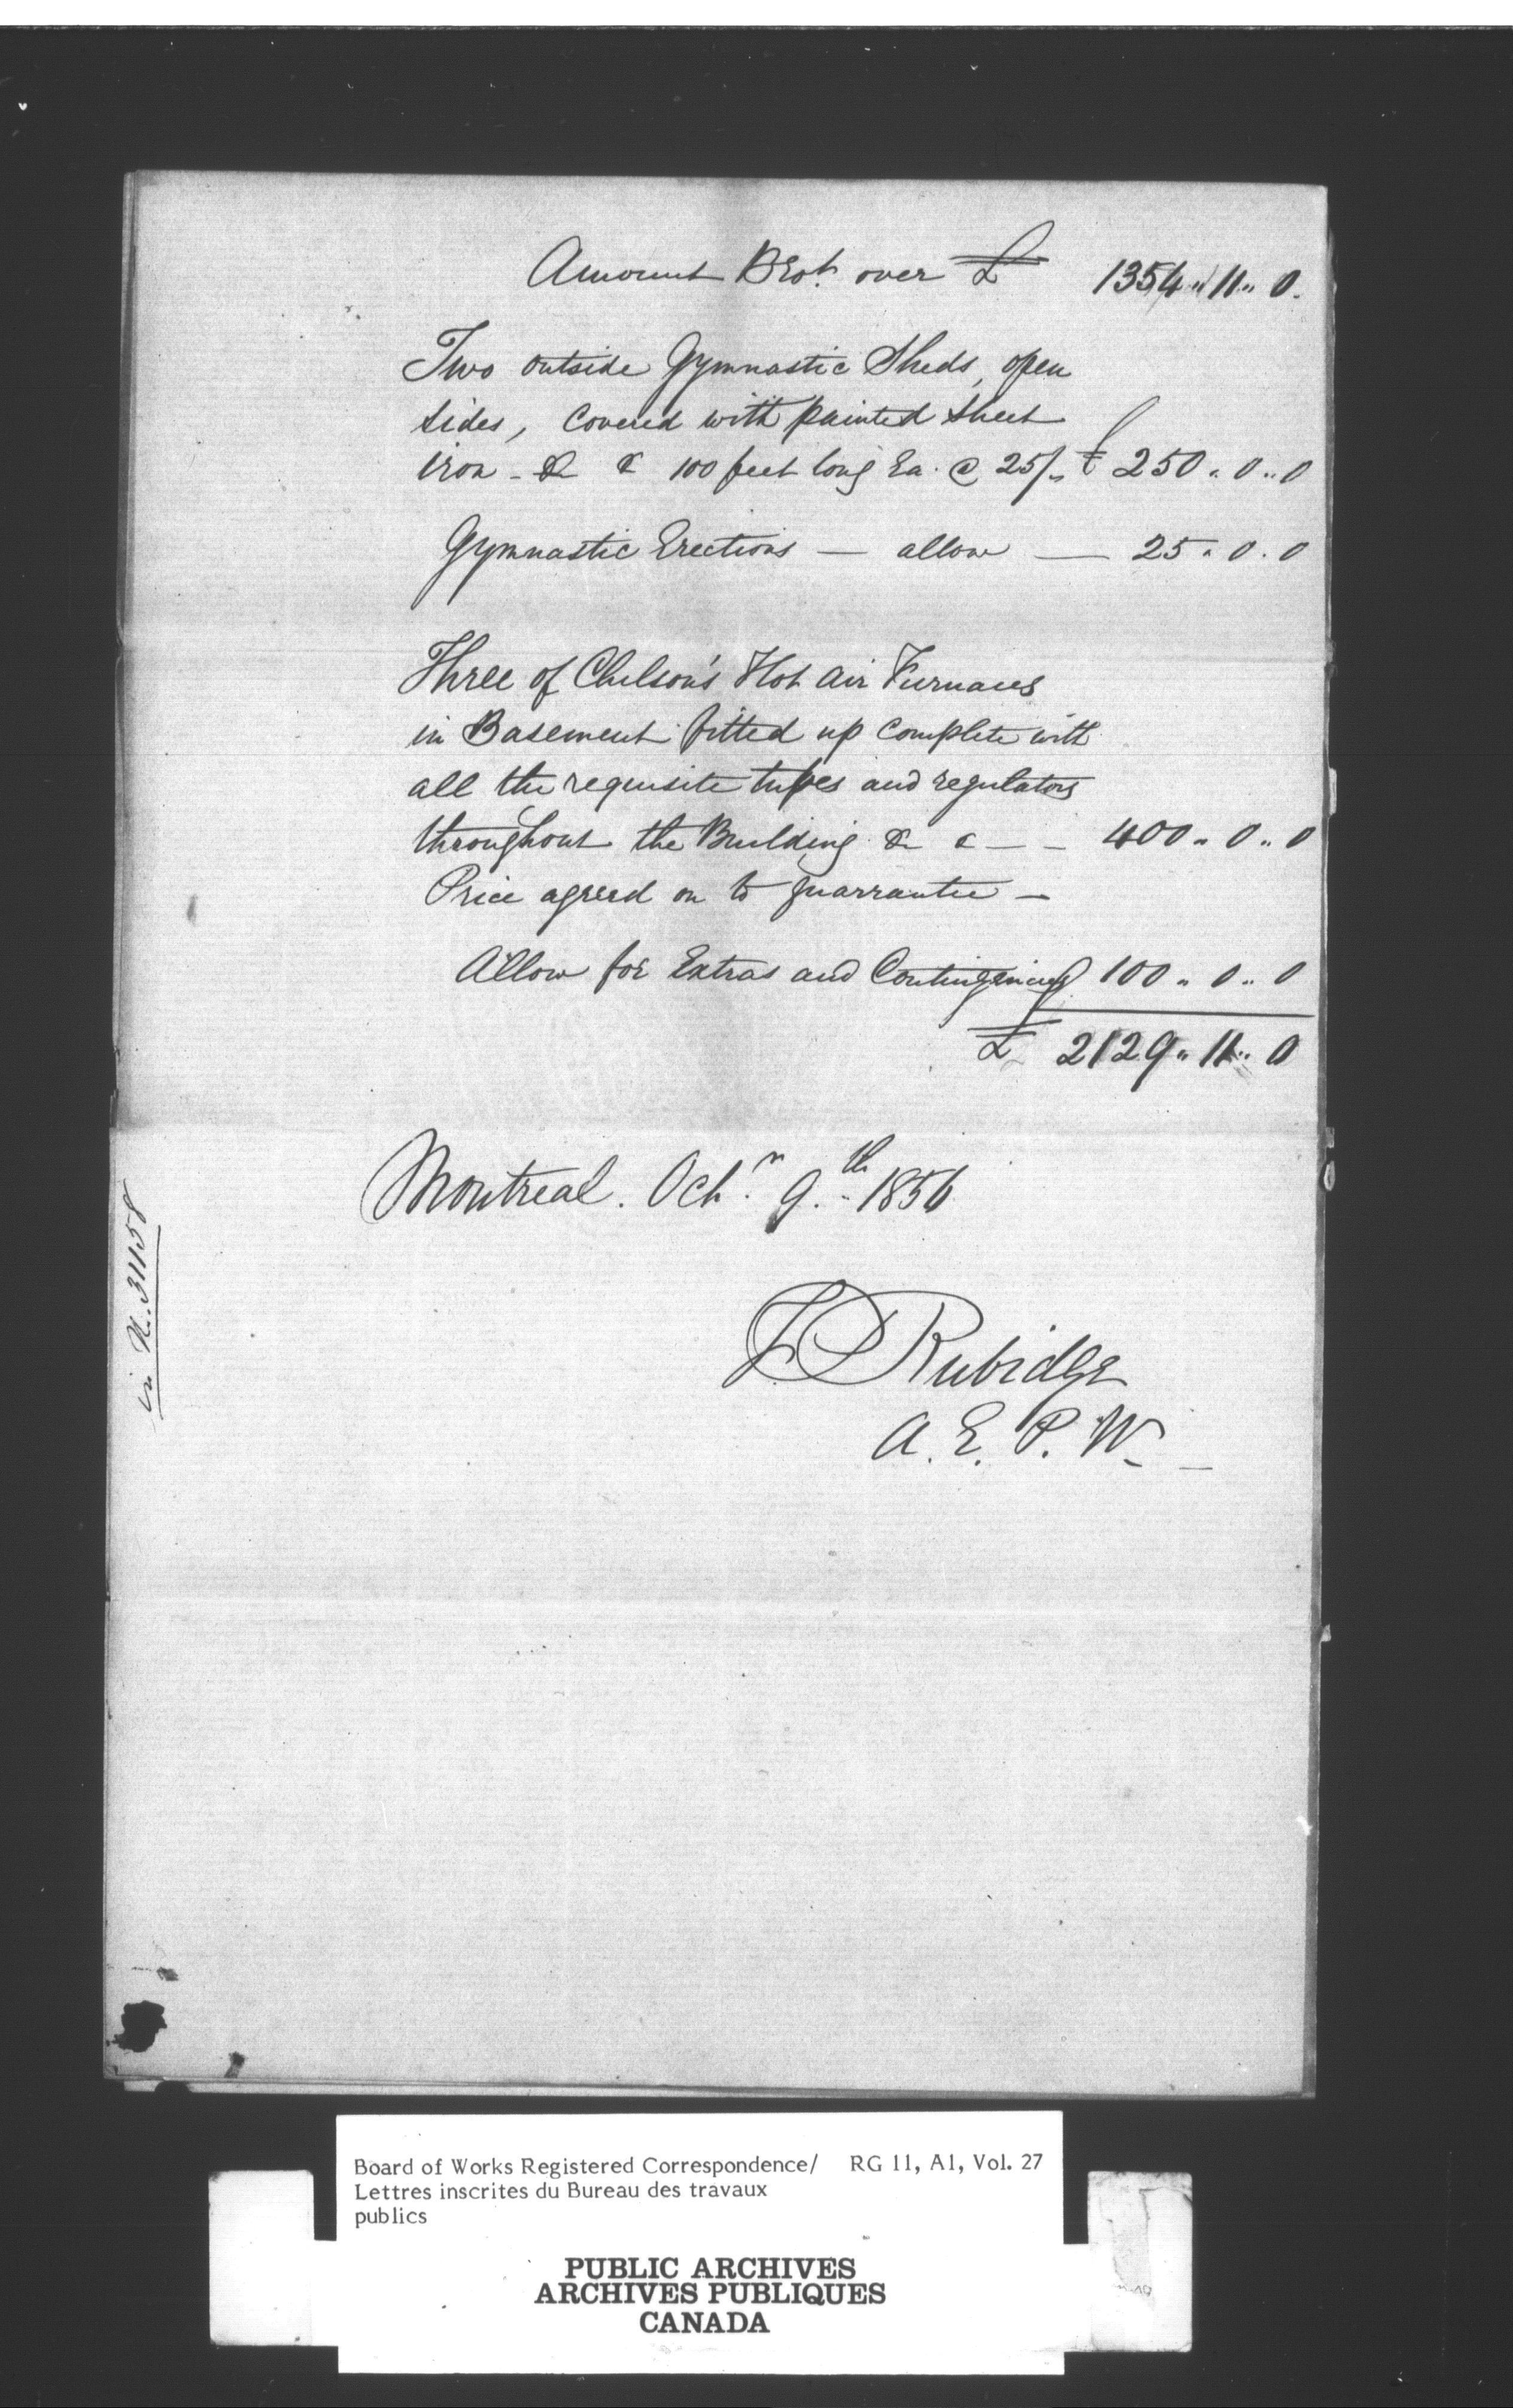 Amount Brot. over £ 1354 " 11 " 0.
Two outside Gymnastic Sheds, open
sides, Covered with painted sheet
iron - & c 100 feet long Ea. @ 25/- £ 250 " 0 " 0
Gymnastic Erections — allow — 25 " 0 . 0
Three of Chilson's Hot air Furnaces
in Basement fitted up Complete with
all the requisite tubes and regulators
throughout the Building & c - - 400 " 0 " 0
Price agreed on to guarrantee —
Allow for Extras and Contingencies 100 " 0 " 0
£ 2129 " 11 " 0
Montreal. Octr. 9th. 1856
F P Rubidge
A. E. P. W. —
in N. 31158
Board of Works Registered Correspondence/ RG 11, A1, Vol. 27
Lettres inscrites du Bureau des travaux
publics
PUBLIC ARCHIVES
ARCHIVES PUBLIQUES
CANADA